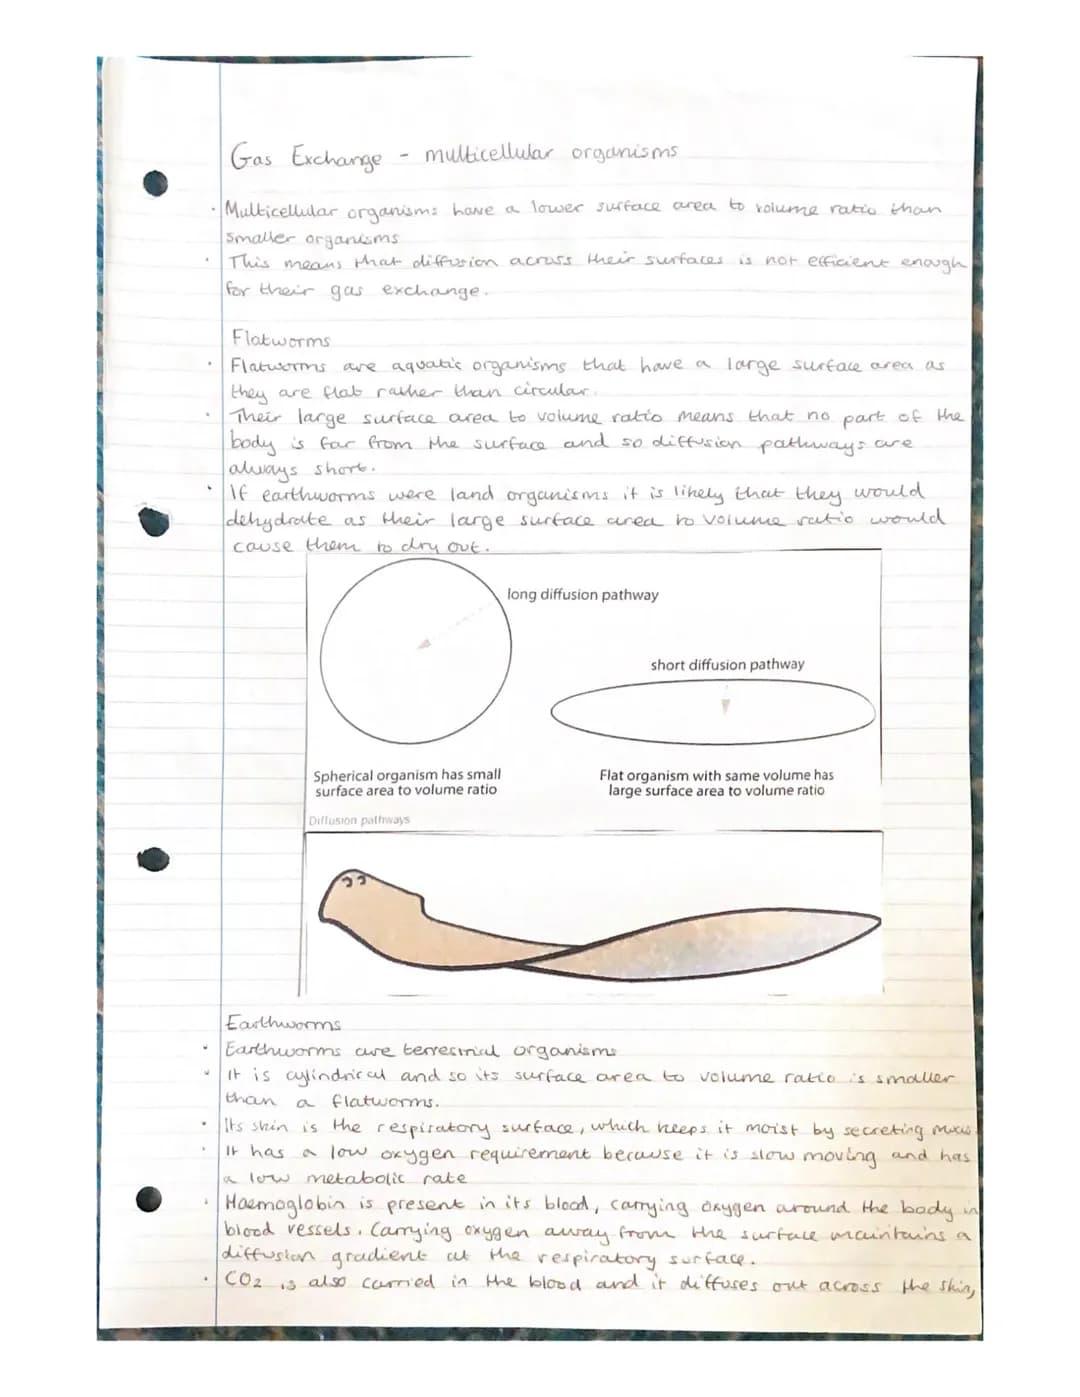 Gas Exchange - multicellular organisms
· Multicellular organisms have a lower surface area to volume ratio than
smaller organisms
· This means that diffusion across their surfaces is not efficient enough
for their gas exchange.
Flatworms
· Flatworms are aquatic organisms that have a large surface area as
they are flat rather than circular.
· Their large surface area to volume ratio means that no part of the
body is far from the surface and so diffusion pathways are
always short.
· If earthworms were land organisms it is likely that they would
dehydrate as their large surface area to volume ratio would
cause them to dry out.
long diffusion pathway
short diffusion pathway
Spherical organism has small
surface area to volume ratio
Flat organism with same volume has
large surface area to volume ratio
Diffusion pathways
Earthworms
· Earthworms are terrestrial organisms
· It is cylindrical and so its surface area to volume ratio is smaller
than a flatworms.
· Its skin is the respiratory surface, which keeps it moist by secreting mucus.
· It has a low oxygen requirement because it is slow moving and has
a low metabolic rate
· Haemoglobin is present in its blood, carrying oxygen around the body in
blood vessels. Carrying oxygen away from the surface maintains a
diffusion gradient at the respiratory surface.
· CO2 is also carried in the blood and it diffuses out across the skin,